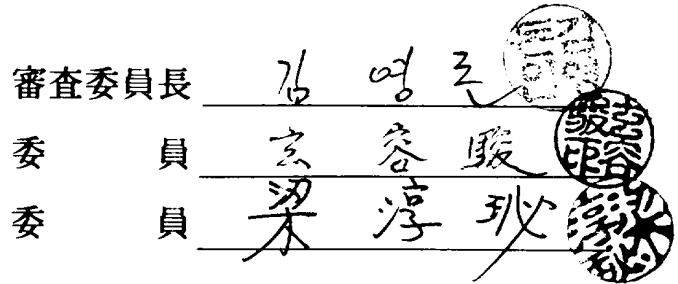 審査委員長 김 영 돈
委 員 玄 容 駿
委 員 梁 淳 珌